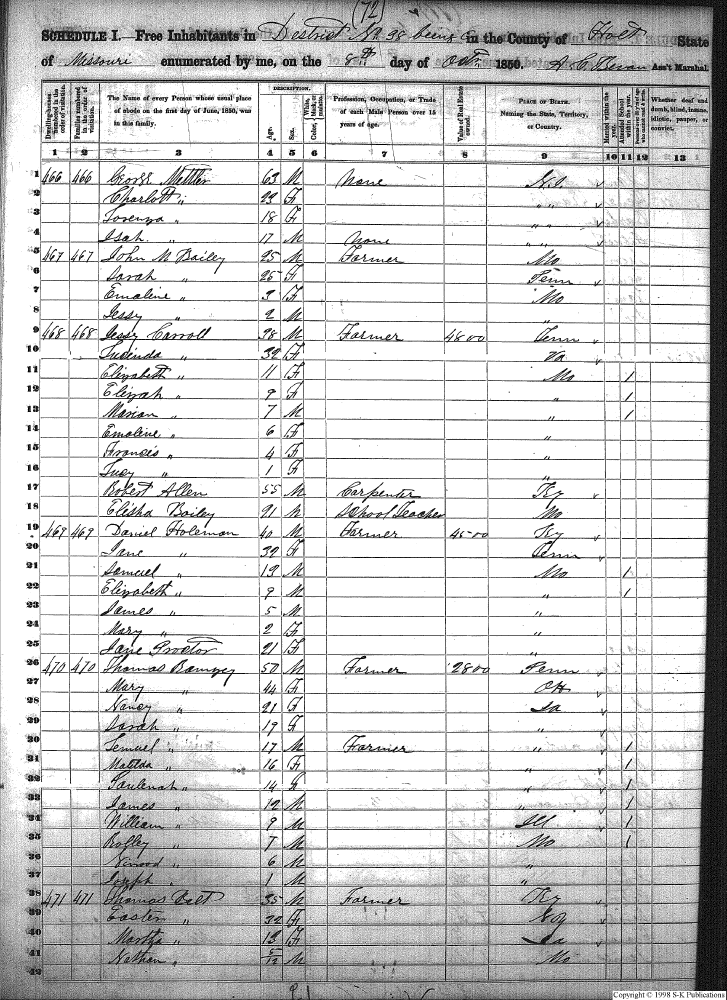 (72)
SCHEDULE I.—Free Inhabitants in District No 38 being in the County of Holt State
of Missouri enumerated by me, on the 8th day of Oct. 1850. Ass't Marshal.
Dwelling-houses numbered in the order of visitation.
Families numbered in the order of visitation.
The Name of every Person whose usual place of abode on the first day of June, 1850, was in this family.
DESCRIPTION.
Age.
Sex.
Color, White, black, or mulatto.
Profession, Occupation, or Trade of each Male Person over 15 years of age.
Value of Real Estate owned.
PLACE OF BIRTH. Naming the State, Territory, or Country.
Married within the year.
Attended School within the year.
Whether deaf and dumb, blind, insane, idiotic, pauper, or convict.
1 2 3 4 5 6 7 8 9 10 11 12 13
1 466 466 George 63 M None
2 Charlott " 23 F " "
3 " 18 F " "
4 " 17 M None " "
5 467 467 John M Bailey 25 M Farmer Mo
6 Sarah " 25 F Tenn
7 Emaline " 3 F Mo
8 Jessy " 2 M "
9 468 468 Jessy Carroll 38 M Farmer 4800 Tenn
10 Lucinda " 32 F Va
11 Elizabeth " 11 F Mo 1
12 " 9 F " 1
13 Marian " 7 M " 1
14 Emaline " 6 F "
15 Francis " 4 F "
16 Lucy " 1 F "
17 Robert Allen 55 M Carpenter Ky
18 Elisha Bailey 21 M School Teacher Mo
19 469 469 Daniel Holeman 40 M Farmer 4500 Ky
20 Jane " 32 F Tenn
21 Samuel " 13 M Mo 1
22 Elizabeth " 9 M " 1
23 James " 5 M "
24 Mary " 2 F "
25 Jane Proctor 21 F "
26 470 470 Thomas 50 M Farmer 2800 Penn
27 Mary " 44 F OH
28 Nancy " 21 F Ia
29 Sarah " 19 F "
30 Semuel " 17 M Farmer " 1
31 Matilda " 16 F " 1
32 " 14 F " 1
33 James " 12 M " 1
34 William " 9 M Ill 1
35 " 7 M Mo 1
36 " 6 M "
37 Joseph " 1 M "
38 471 471 Thomas 35 M Farmer Ky
39 Eastern " 32 F
40 Martha " 13 F Ia
41 Nathan " 5/12 M Mo
42
Copyright © 1998 S-K Publications